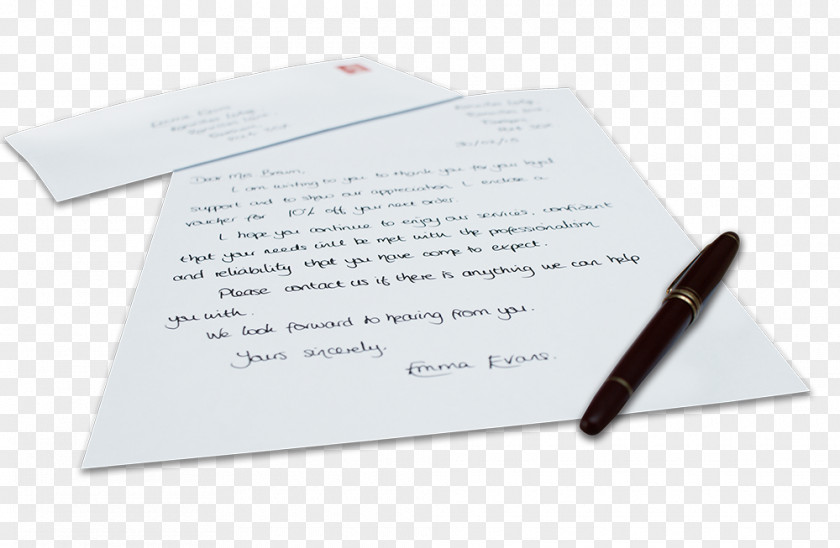 Dear Mrs Brown,
I am writing to you to thank you for your loyal
support and to show our appreciation I enclose a
voucher for 10% off your next order.
I hope you continue to enjoy our services, confident
that your needs will be met with the professionalism
and reliability that you have come to expect.
Please contact us if there is anything we can help
you with.
We look forward to hearing from you.
Yours sincerely.
Emma Evans.